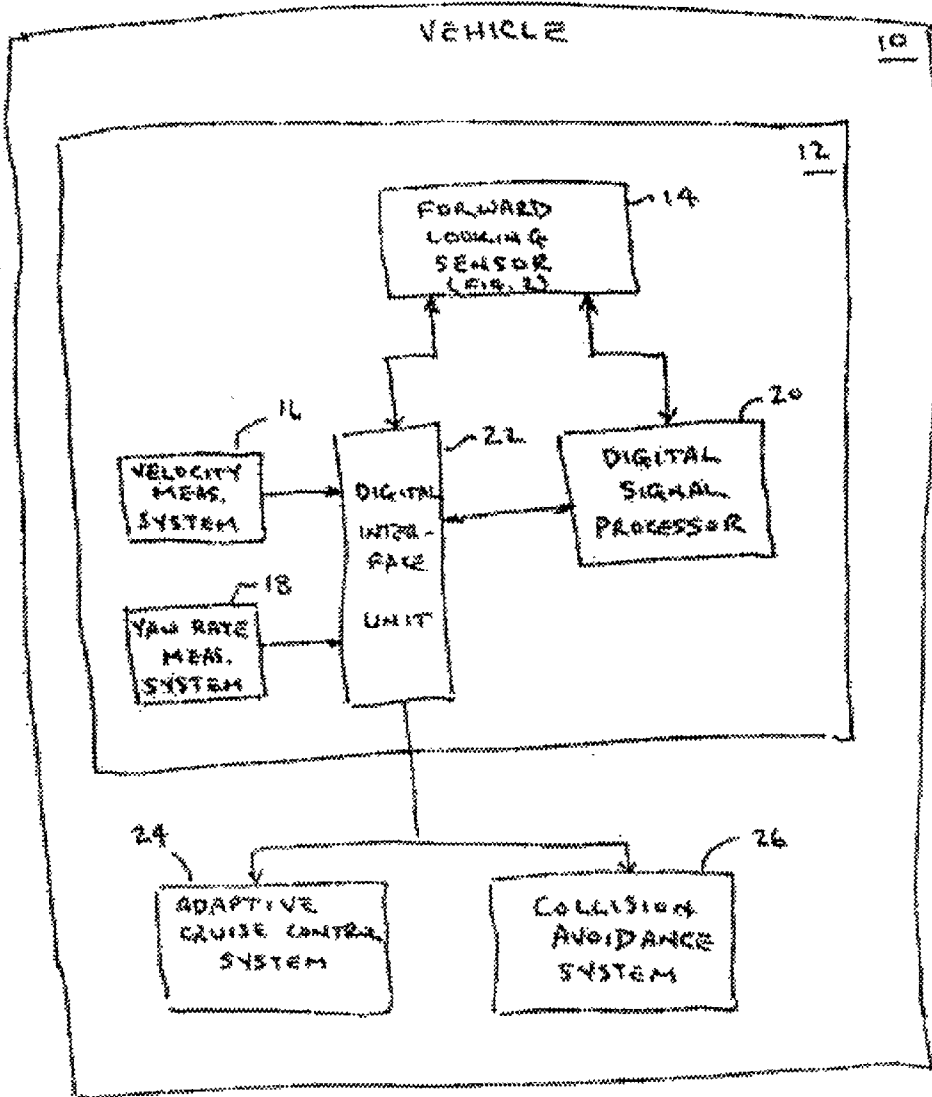 VEHICLE
10
12
FORWARD
LOOKING
SENSOR
(FIG. 2)
14
16
VELOCITY
MEAS.
SYSTEM
22
DIGITAL
INTER-
FACE
UNIT
20
DIGITAL
SIGNAL
PROCESSOR
18
YAW RATE
MEAS.
SYSTEM
24
ADAPTIVE
CRUISE CONTROL
SYSTEM
26
COLLISION
AVOIDANCE
SYSTEM